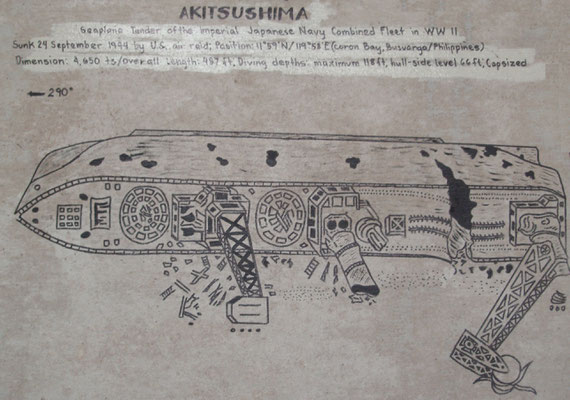 AKITSUSHIMA
Seaplane Tender of the Imperial Japanese Navy Combined Fleet in WW II
Sunk 24 September 1944 by U.S. air raid; Position: 11°59'N/119°58'E (Coron Bay, Busuanga/Philippines)
Dimension: 4,650 ts/overall Length: 457 ft, Diving depths: maximum 118 ft, hull-side level 66 ft, Capsized
290°